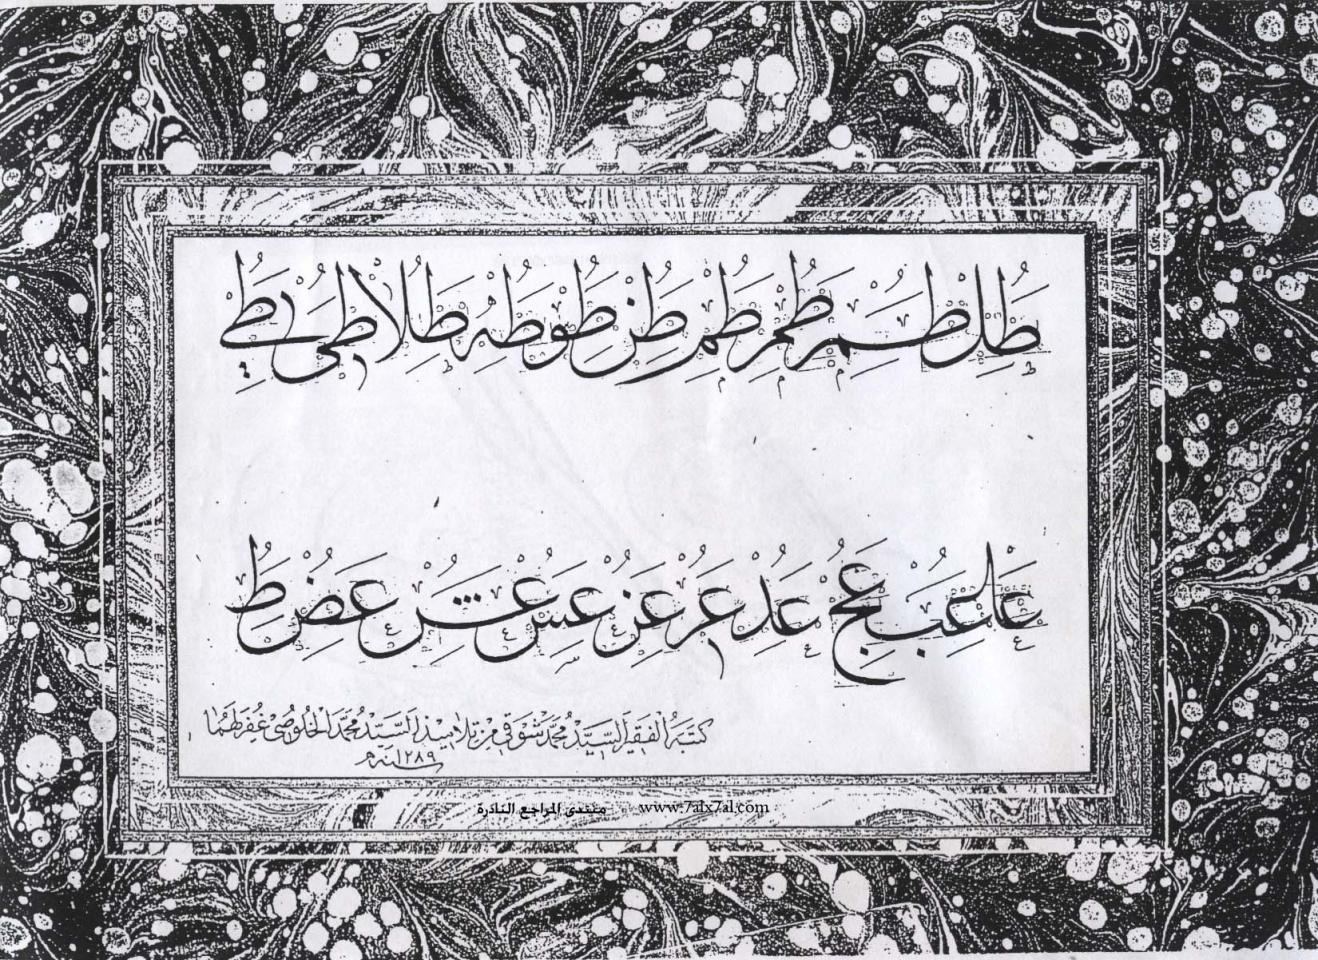 طك طل طسم طم طم طن طو طه طلا طى طى
عا عب عج عد عر عز عس عش عص ط
كتبه الفقير السيد محمد شوقي من تلاميذ السيد محمد الخلوصي غفر لهما
سنه ١٢٨٩
منتدى المراجع النادرة www.7alx7al.com